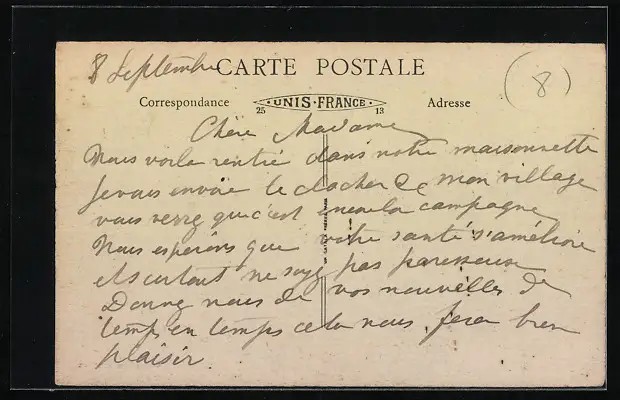 8 Septembre CARTE POSTALE (8)
Correspondance UNIS-FRANCE 25 13 Adresse
Chère Madame
Nous voila rentré dans notre maisonnette
je vous envoie le clocher de mon village
vous verrez que c'est encor la campagne
Nous espérons que votre santé s'améliore
et surtout ne soyez pas paresseuse
Donnez nous de vos nouvelles de
temps en temps cela nous fera bien
plaisir.